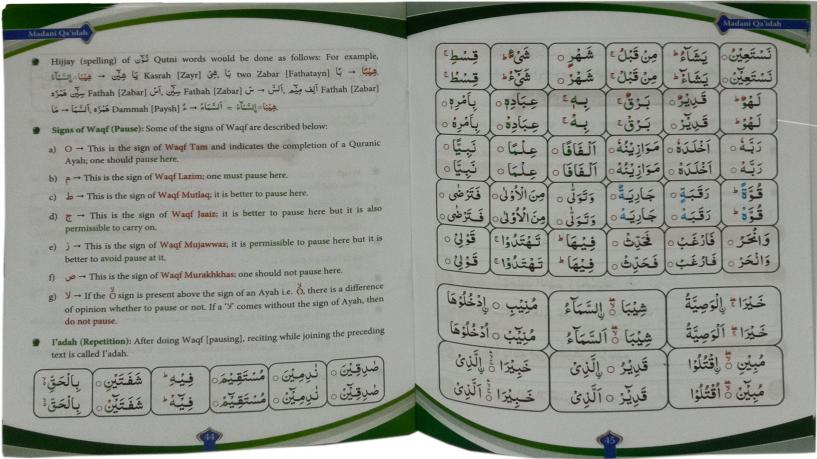 Madani Qa'idah
Hijjay (spelling) of Qutni words would be done as follows: For example,
Kasrah [Zayr] two Zabar [Fathatayn]
Fathah [Zabar] Fathah [Zabar] Fathah [Zabar]
Dammah [Paysh]
Signs of Waqf (Pause): Some of the signs of Waqf are described below:
a) O → This is the sign of Waqf Tam and indicates the completion of a Quranic
Ayah; one should pause here.
b) م → This is the sign of Waqf Lazim; one must pause here.
c) ط → This is the sign of Waqf Mutlaq; it is better to pause here.
d) ج → This is the sign of Waqf Jaaiz; it is better to pause here but it is also
permissible to carry on.
e) ز → This is the sign of Waqf Mujawwaz; it is permissible to pause here but it is
better to avoid pause at it.
f) ص → This is the sign of Waqf Murakhkhas; one should not pause here.
g) لا → If the sign is present above the sign of an Ayah i.e. , there is a difference
of opinion whether to pause or not. If a "لا" comes without the sign of Ayah, then
do not pause.
I'adah (Repetition): After doing Waqf [pausing], reciting while joining the preceding
text is called I'adah.
صٰدِقِيْنَ نٰدِمِيْنَ مُسْتَقِيْمٌ فِيْهِ شَفَتَيْنِ بِالْحَقِّ
صٰدِقِيْنْ نٰدِمِيْنْ مُسْتَقِيْمْ فِيْهْ شَفَتَيْنْ بِالْحَقّْ
44
Madani Qa'idah
نَسْتَعِيْنُ يَشَآءُ مِنْ قَبْلُ شَهْرٍ شَيْءٌ قِسْطِ
نَسْتَعِيْنْ يَشَآءْ مِنْ قَبْلْ شَهْرْ شَيْءْ قِسْطْ
لَهْوٌ قَدِيْرٌ بَرْقٌ بِهٖ عِبَادِهٖ بِاَمْرِهٖ
لَهْوْ قَدِيْرْ بَرْقْ بِهْ عِبَادِهْ بِاَمْرِهْ
رَبَّهٗ اَخْلَدَهٗ مَوَازِيْنُهٗ اَلْفَافًا عِلْمًا نَبِيًّا
رَبَّهْ اَخْلَدَهْ مَوَازِيْنُهْ اَلْفَافَا عِلْمَا نَبِيَّا
قُوَّةٌ رَقَبَةٍ جَارِيَةٌ وَتَوَلّٰى مِنَ الْاُوْلٰى فَتَرْضٰى
قُوَّهْ رَقَبَهْ جَارِيَهْ وَتَوَلّٰى مِنَ الْاُوْلٰى فَتَرْضٰى
وَانْحَرْ فَارْغَبْ فَحَدِّثْ فِيْهَا تَهْتَدُوْا قَوْلِيْ
وَانْحَرْ فَارْغَبْ فَحَدِّثْ فِيْهَا تَهْتَدُوْا قَوْلِيْ
خَيْرَا الْوَصِيَّةُ شِيْبَا السَّمَآءُ مُنِيْبِ ادْخُلُوْهَا
خَيْرَا اَلْوَصِيَّةُ شِيْبَا اَلسَّمَآءُ مُنِيْبْ اُدْخُلُوْهَا
مُبِيْنِ اقْتُلُوْا قَدِيْرُ الَّذِيْ خَبِيْرَا الَّذِيْ
مُبِيْنْ اُقْتُلُوْا قَدِيْرْ اَلَّذِيْ خَبِيْرَا اَلَّذِيْ
45